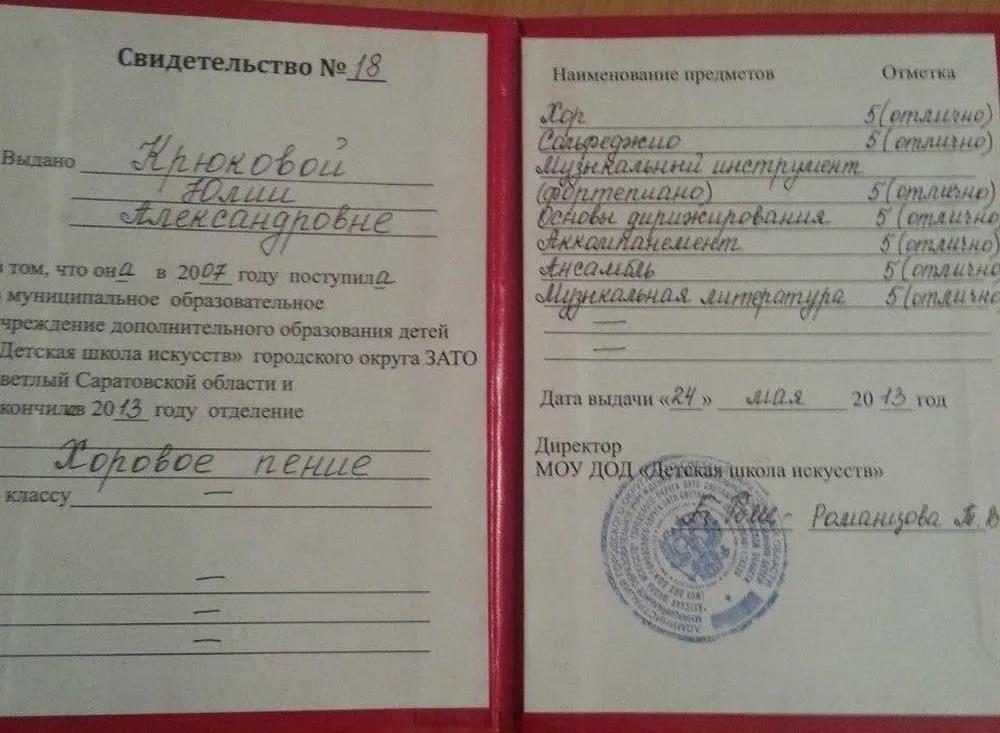 Свидетельство № 18
Выдано Крюковой
Юлии
Александровне
в том, что она в 2007 году поступила
муниципальное образовательное
чреждение дополнительного образования детей
Детская школа искусств» городского округа ЗАТО
ветлый Саратовской области и
кончила в 2013 году отделение
Хоровое пение
классу —
—
—
—
Наименование предметов Отметка
Хор 5 (отлично)
Сольфеджио 5 (отлично)
Музыкальный инструмент
(фортепиано) 5 (отлично)
Основы дирижирования 5 (отлично)
Аккомпанемент 5 (отлично)
Ансамбль 5 (отлично)
Музыкальная литература 5 (отлично)
—
—
Дата выдачи «24» мая 2013 год
Директор
МОУ ДОД «Детская школа искусств»
Романцова Т. В